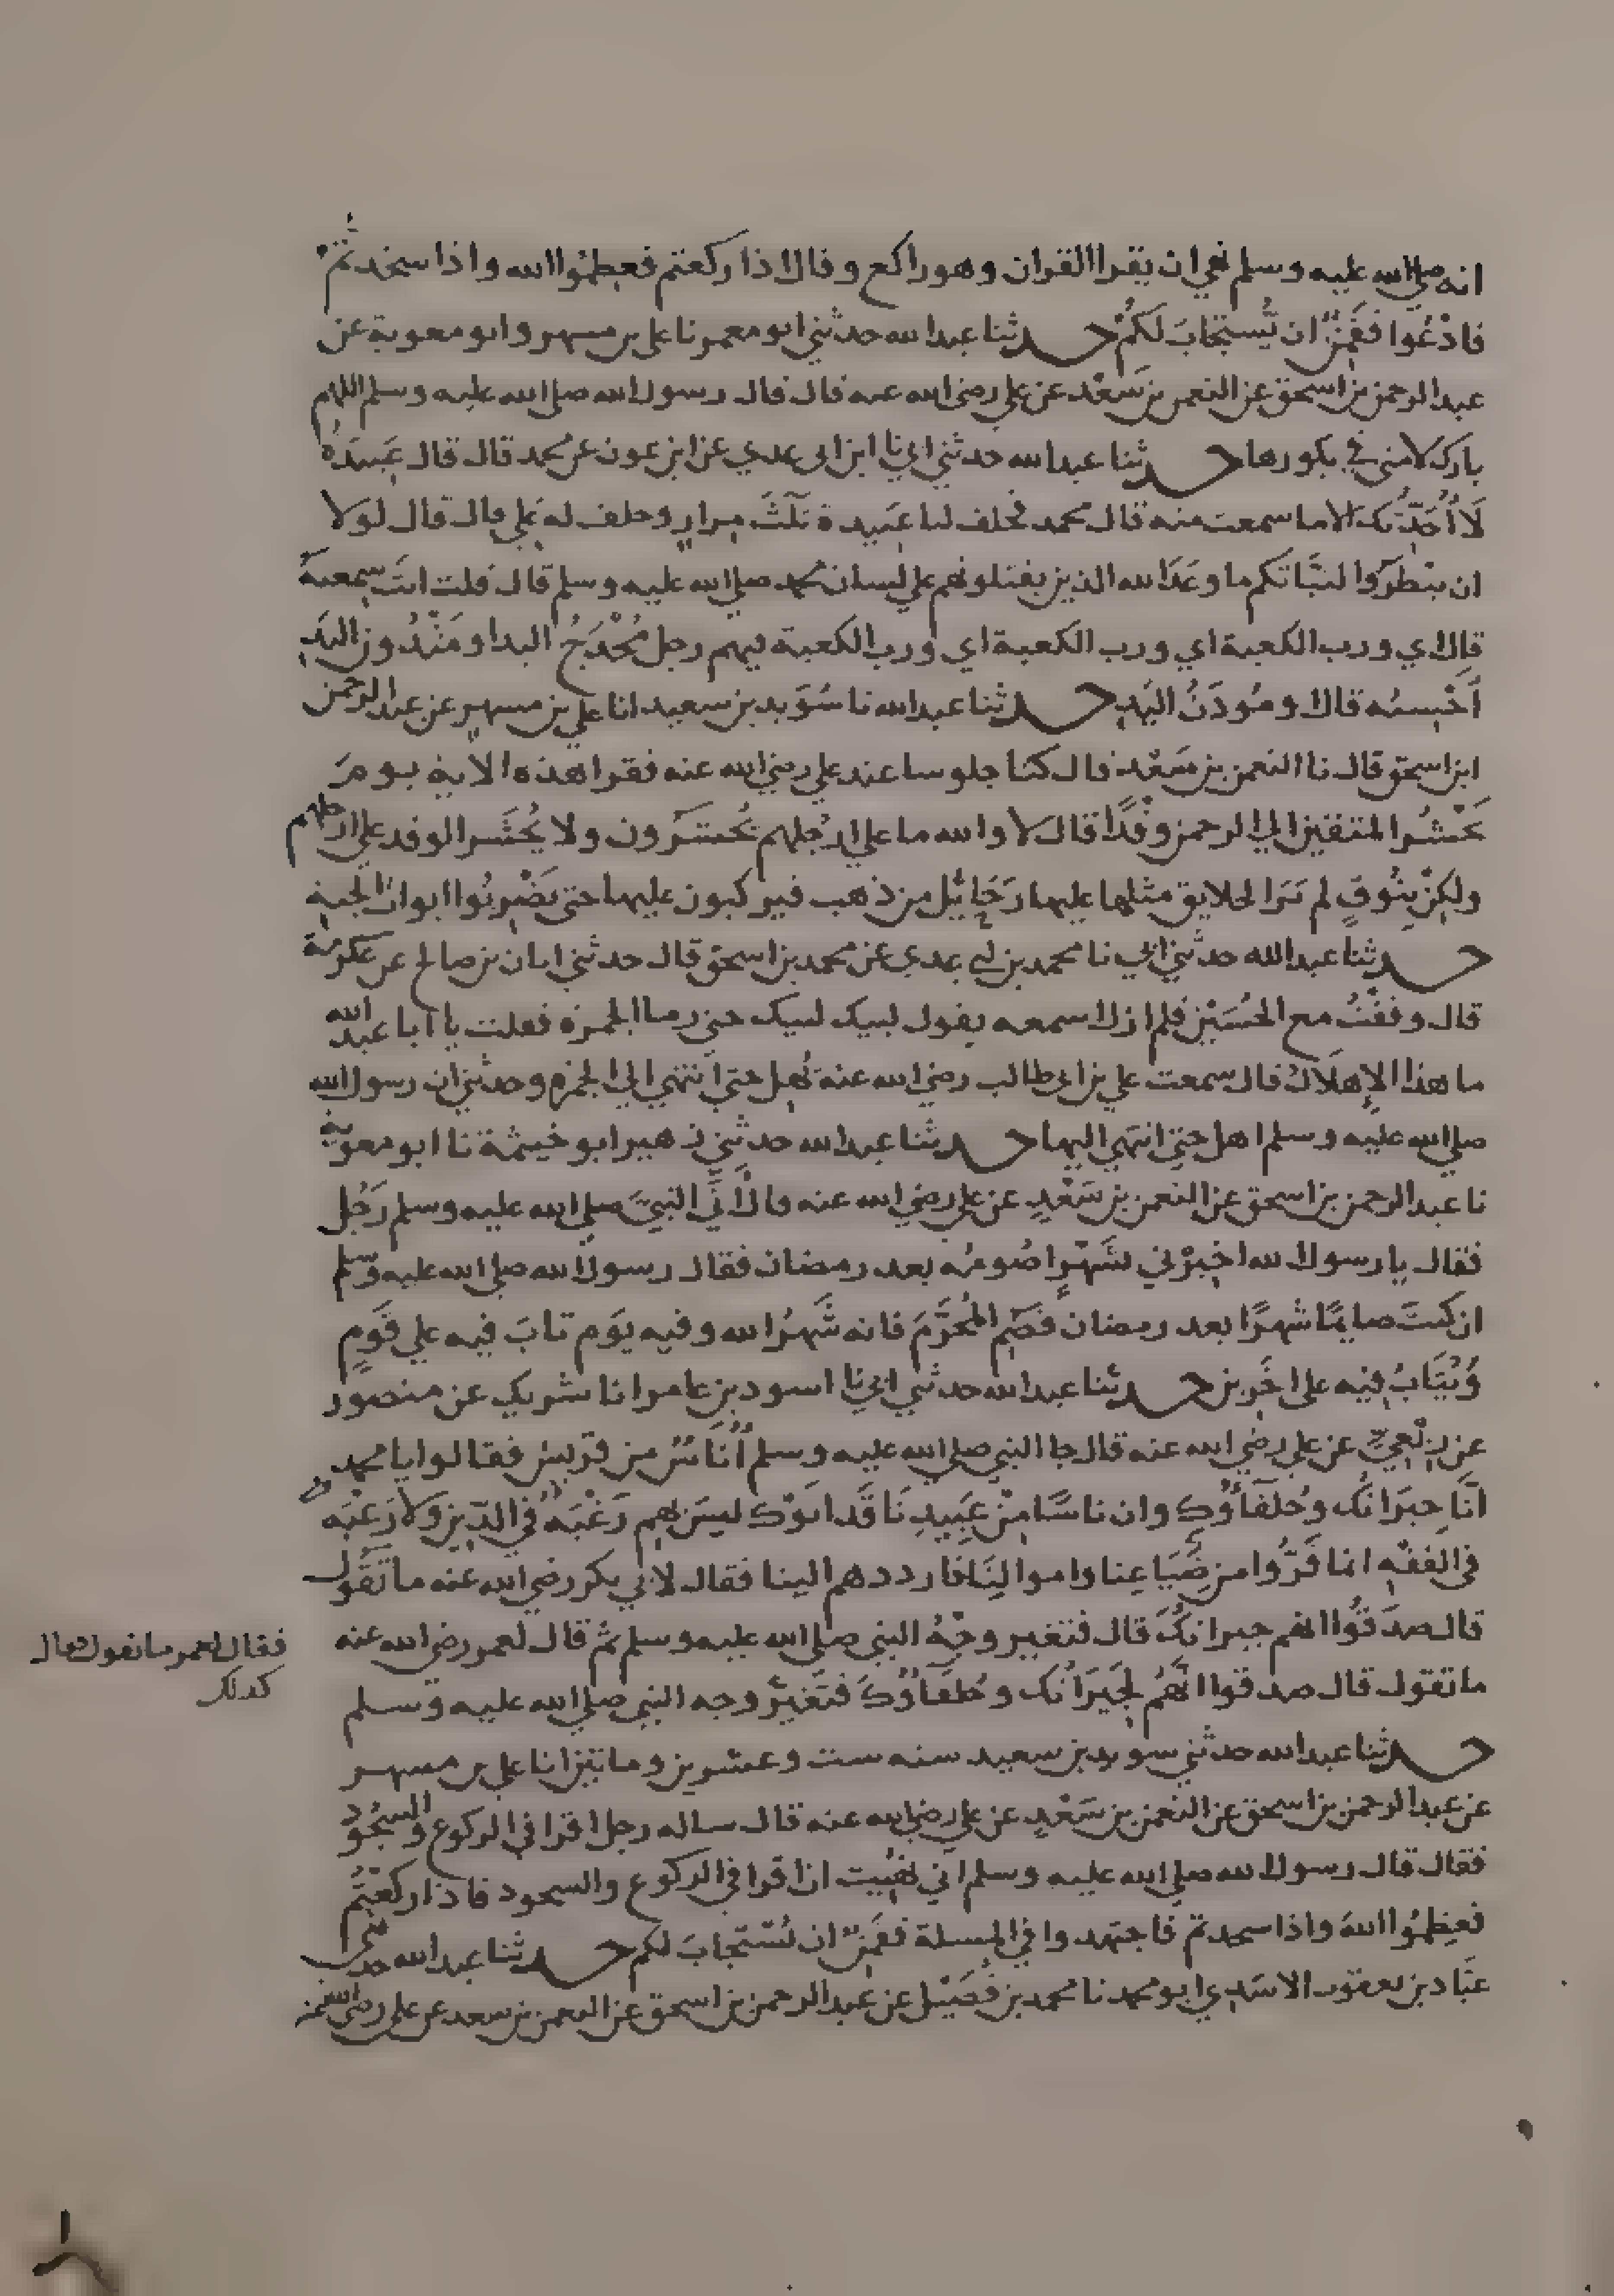 انه صلى الله عليه وسلم نهي ان يقرا القران وهو راكع وقال اذا ركعتم فعظموا الله واذا سجدتم
فادْعُوا فقَمِنٌ ان يُستجَابَ لكُمْ حدثنا عبد الله حدثني ابو معمر نا على بن مسهر وابو معوية عن
عبد الرحمن بن اسحق عن النعمن بن سَعْد عن علي رضي الله عنه قال قال رسول الله صلى الله عليه وسلم اللهم
بارك لامتي في بكورها حدثنا عبد الله حدثني ابي نا ابن ابى عدي عن ابن عون عن محمد قال قال عَبِيدَةُ
لَا أُحَدِّثُك الا ما سمعت منه قال محمد فحلف لنا عَبِيدة ثلثَ مِرارٍ وحلف له علي قال قال لولا
ان تبطرَوُا لنبَّاتكم ما وعَدَ الله الذين يقتلونهم علي لسان محمد صلي الله عليه وسلم قال قلت انتَ سمعته
قال اي ورب الكعبة اي ورب الكعبة اي ورب الكعبة فيهم رجل مُخْدَجُ اليد او مَثْدُون اليَدِ
أَحْسِبُه قال او مُودَنُ اليَدِ حدثنا عبد الله نا سُوَيد بن سعيد انا علي بن مسهر عن عبد الرحمن
ابن اسحق قال نا النعمن بن سَعْد قال كنا جلوسا عند علي رضي الله عنه فقرا هذه الاية يومَ
نَحْشُر المتقين الي الرحمن وفْدًا قال لا والله ما علي ارْجُلهم يُحشَرون ولا يُحْشَر الوفد علي ارجلهم
ولكِنْ بِنُوقٍ لم تَرَ الخلايق مثلها عليها رَحَايِلُ من ذهب فيركبون عليها حتى يَضْرِبُوا ابوابَ الجنة
حدثنا عبد الله حدثني ابي نا محمد بن ابي عدي عن محمد بن اسحق قال حدثني ابان بن صالح عن عكرمة
قال وقفْتُ مع الحُسَيْن فلم ازل اسمعه يقول لبيك لبيك حتى رما الجمرة فقلت يا ابا عبد الله
ما هذا الإِهلَالُ قال سمعت علي بن ابى طالب رضي الله عنه يُهِل حتى انتهي الي الجمرة وحدثني ان رسول الله
صلي الله عليه وسلم اهل حتى انتهي اليها حدثنا عبد الله حدثني زهير ابو خيثمة نا ابو معوية
نا عبد الرحمن بن اسحق عن النعمن بن سَعْدٍ عن علي رضي الله عنه قال أَتَي النبيَّ صلي الله عليه وسلم رَجُل
فقال يا رسول الله اخبِرْني بشَهْرٍ اصُومُه بعد رمضان فقال رسول الله صلي الله عليه وسلم
ان كنتَ صايمًا شهرًا بعد رمضان فصُمِ المُحَرَّمَ فانه شَهرُ الله وفيه يوَم تابَ فيه علي قَومٍ
وَيُتَابُ فيه على اخَرين حدثنا عبد الله حدثني ابي نا اسود بن عامر انا شريك عن منصور
عن رِبْعِيٍّ عن علي رضي الله عنه قال جا النبي صلي الله عليه وسلم أُنَاسٌ من قريش فقالوا يا محمد
انَّا جيرَانُك وحُلَفَآؤُك وان ناسًا مِنْ عَبِيدِنَا قَد اتَوْك ليسَ بهم رَغْبَةٌ في الدّين وَلا رَغْبَة
في الفقْهِ انما فَرُّوا من ضِيَاعِنا واموالِنَا فارددهم الينا فقال لابي بكر رضي الله عنه ما تَقُول
قال صدَقُوا انهم جيرانكَ قال فتغير وجْهُ النبي صلي الله عليه وسلم ثم قال لعمر رضي الله عنه
فقال لعمر ما تقول فقال
كذلك
ما تقول قال صدقوا انَّهُم لجِيَرَانُك وحُلَفَآؤُكَ فتَغيَّر وجه النبي صلي الله عليه وسلم
حدثنا عبد الله حدثني سويد بن سعيد سنه ست وعشرين وماتين انا علي بن مسهر
عن عبد الرحمن بن اسحق عن النعمن بن سَعْدٍ عن علي رضي الله عنه قال ساله رجل اقرا في الركوع والسجُود
فقال قال رسول الله صلي الله عليه وسلم اني نهُيت ان اقرا في الركوع والسجود فاذا ركعتُم
فعظِمُوا اللهَ واذا سجدتم فاجتهدوا في المسلة فقَمِنٌ ان يُسْتَجابَ لكم حدثنا عبد الله حدثني
عبَّاد بن يعقوب الاسَدِي ابو محمد نا محمد بن فُضَيْل عن عبد الرحمن بن اسحق عن النعمن بن سعد عن علي رضي الله عنه